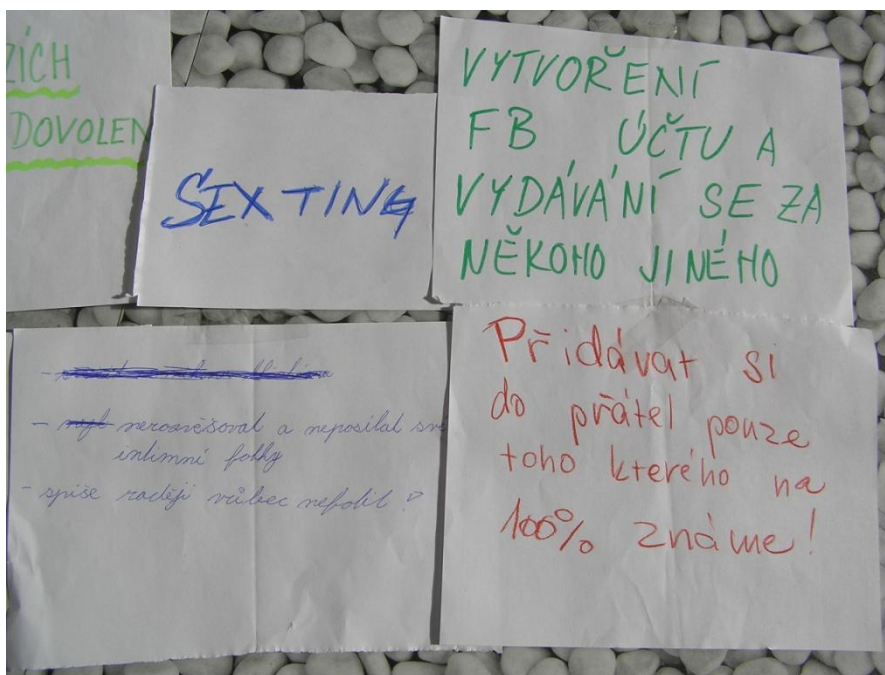 ZÍCH
DOVOLEN
SEXTING
VYTVOŘENÍ
FB ÚČTU A
VYDÁVÁNÍ SE ZA
NĚKOHO JINÉHO
- nerozvěšovat a neposílat své
intimní fotky
- spíše raději vůbec nefotit?
Přidávat si
do přátel pouze
toho kterého na
100% známe!